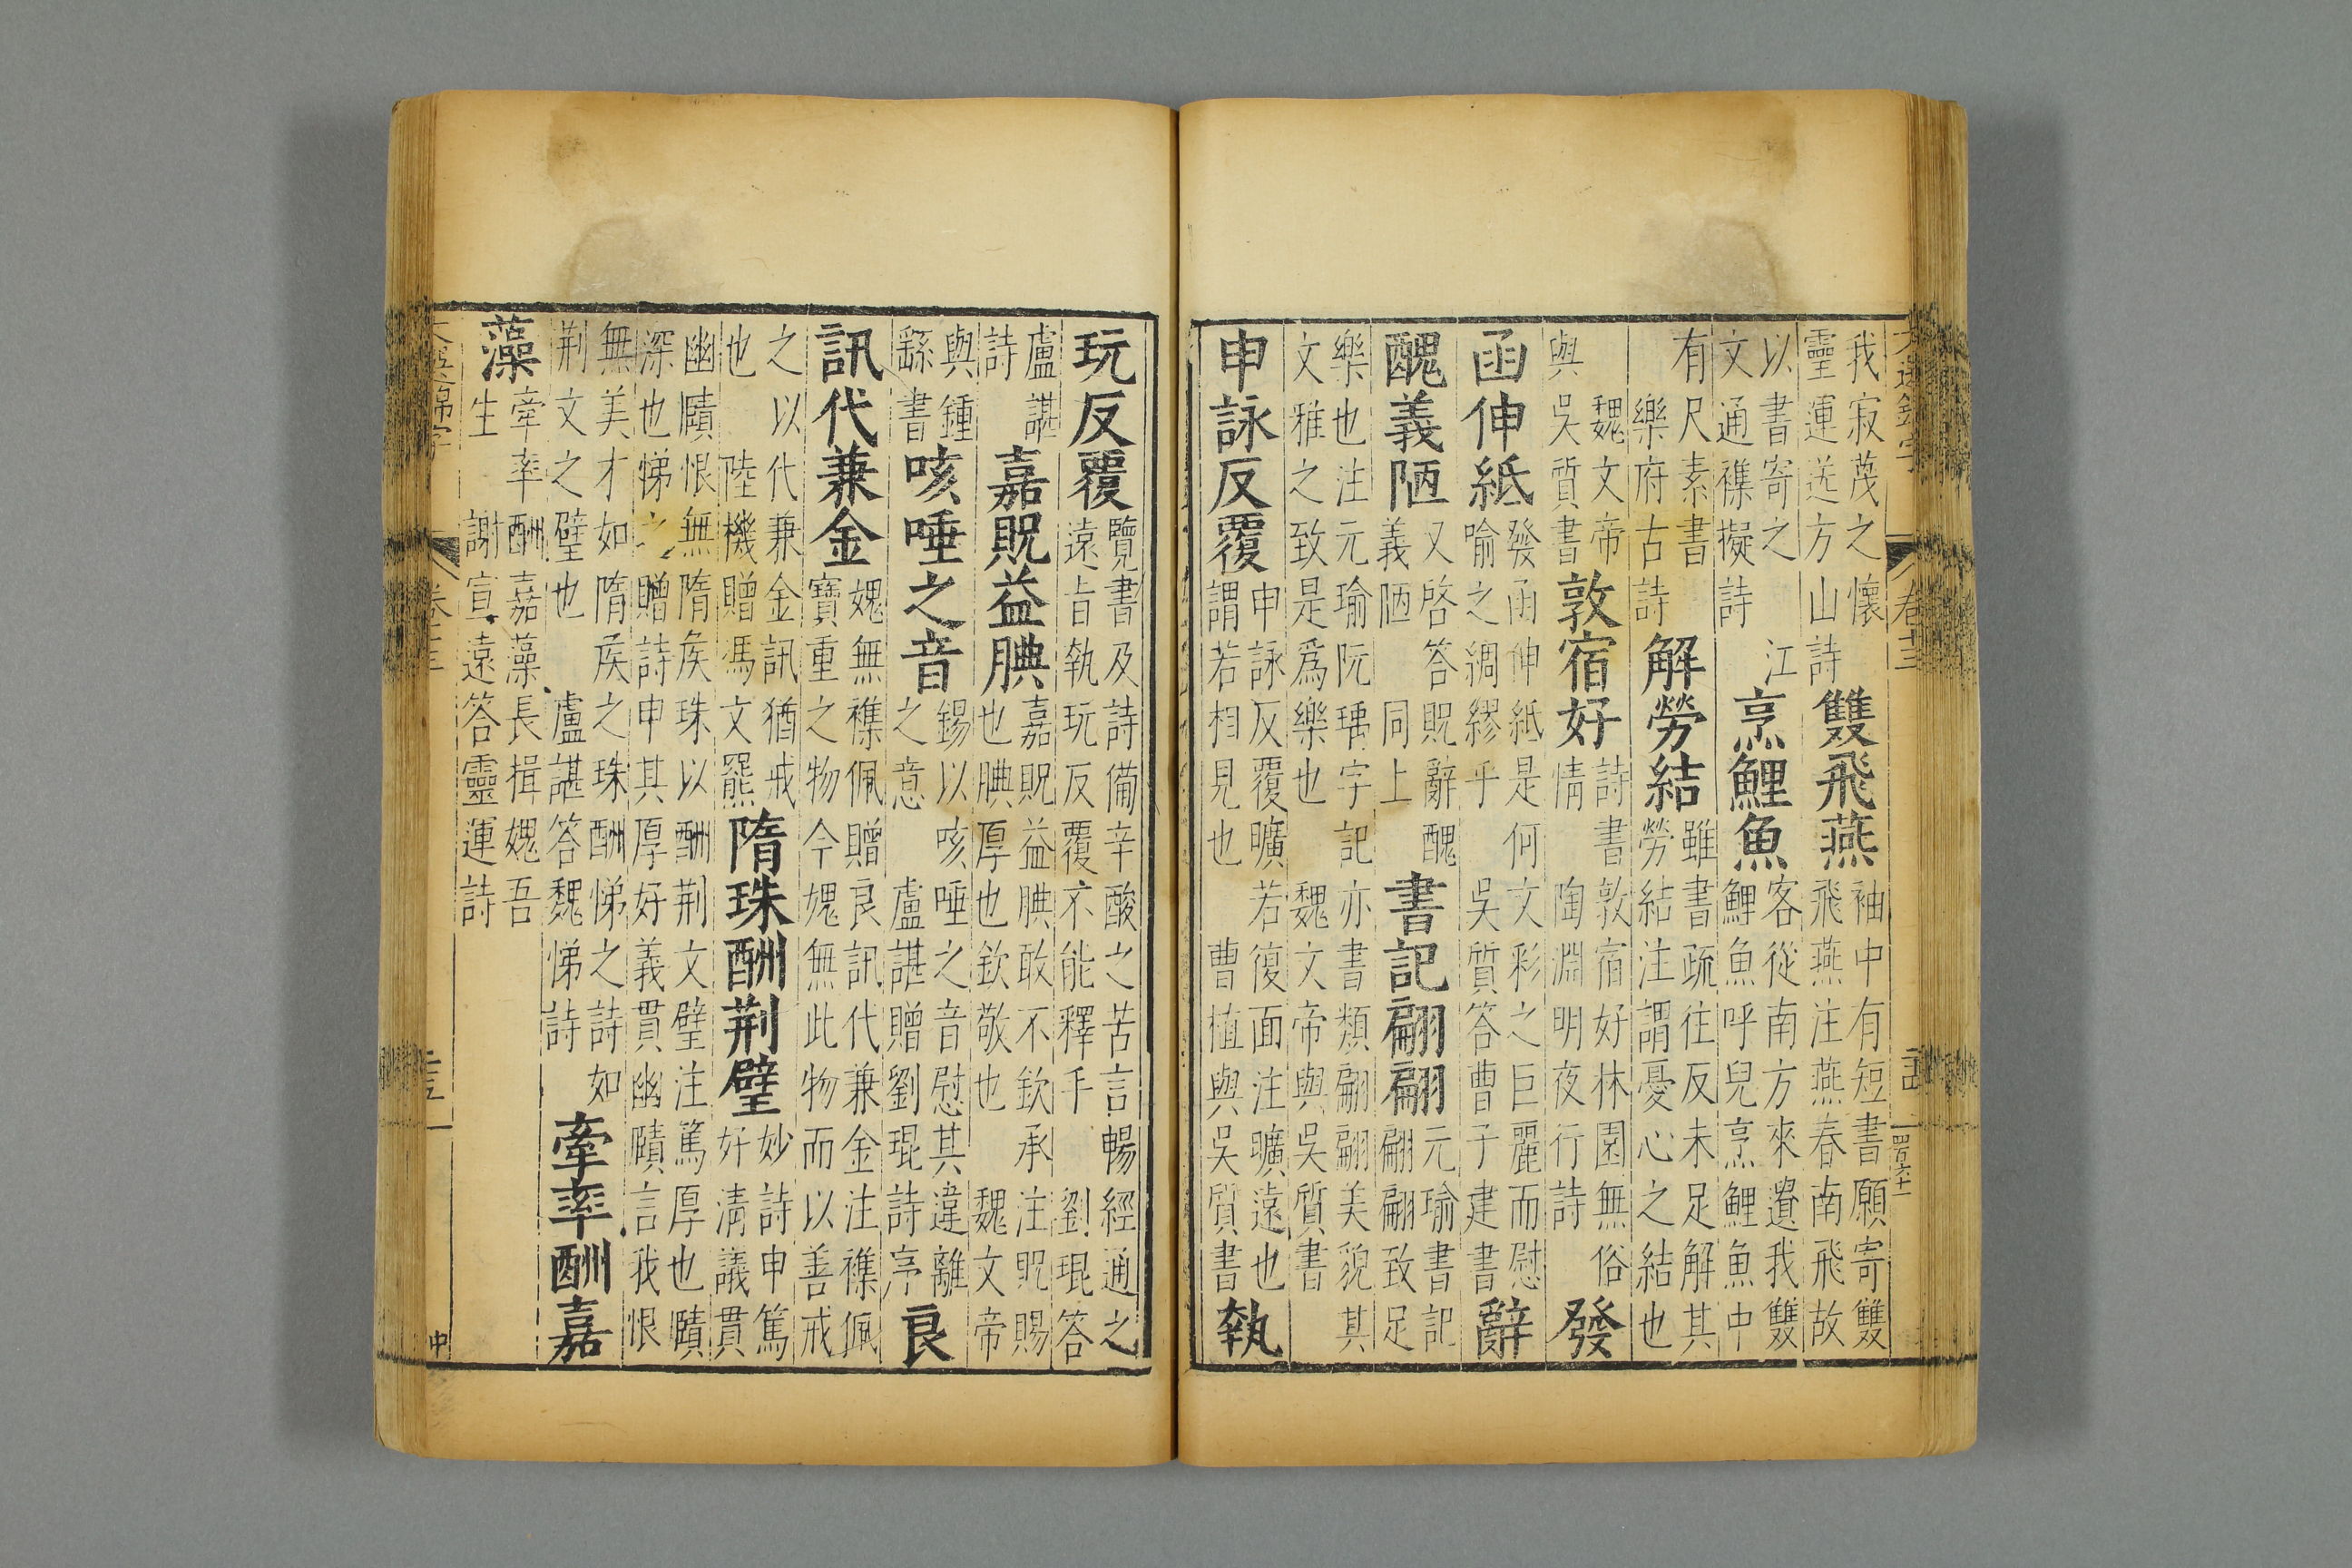 我寂蔑之懷
靈運送方山詩
雙飛燕
袖中有短書願寄雙
飛燕注燕春南飛故
以書寄之 江
文通襍擬詩
烹鯉魚
客從南方來遺我雙
鯉魚呼兒烹鯉魚中
有尺素書
樂府古詩
解勞結
雖書疏往反未足解其
勞結注謂憂心之結也
魏文帝
與吳質書
敦宿好
詩書敦宿好林園無俗
情 陶淵明夜行詩
發
函伸紙
發函伸紙是何文彩之巨麗而慰
喻之綢繆乎 吳質答曹子建書
辭
醜義陋
又啓答貺辭醜
義陋 同上
書記翩翩
元瑜書記
翩翩致足
樂也注元瑜阮瑀字記亦書類翩翩美貌其
文雅之致是爲樂也 魏文帝與吳質書
申詠反覆
申詠反覆曠若復面注曠遠也
謂若相見也 曹植與吳質書
執
玩反覆
覽書及詩備辛酸之苦言暢經通之
遠旨執玩反覆不能釋手 劉琨答
盧諶
詩
嘉貺益腆
嘉貺益腆敢不欽承 注貺賜
也腆厚也欽敬也 魏文帝
與鍾
繇書
咳唾之音
錫以咳唾之音慰其違離
之意 盧諶贈劉琨詩序
良
訊代兼金
媿無襍佩贈良訊代兼金注襍佩
寶重之物今媿無此物而以善戒
之以代兼金訊猶戒
也 陸機贈馮文羆
隋珠酬荆璧
妙詩申篤
好清議貫
幽賾恨無隋矦珠以酬荆文璧注篤厚也賾
深也悌之贈詩申其厚好義貫幽賾言我恨
無美才如隋矦之珠酬悌之詩如
荆文之璧也 盧諶答魏悌詩
牽率酬嘉
藻
牽率酬嘉藻長揖媿吾
生 謝宣遠答靈運詩